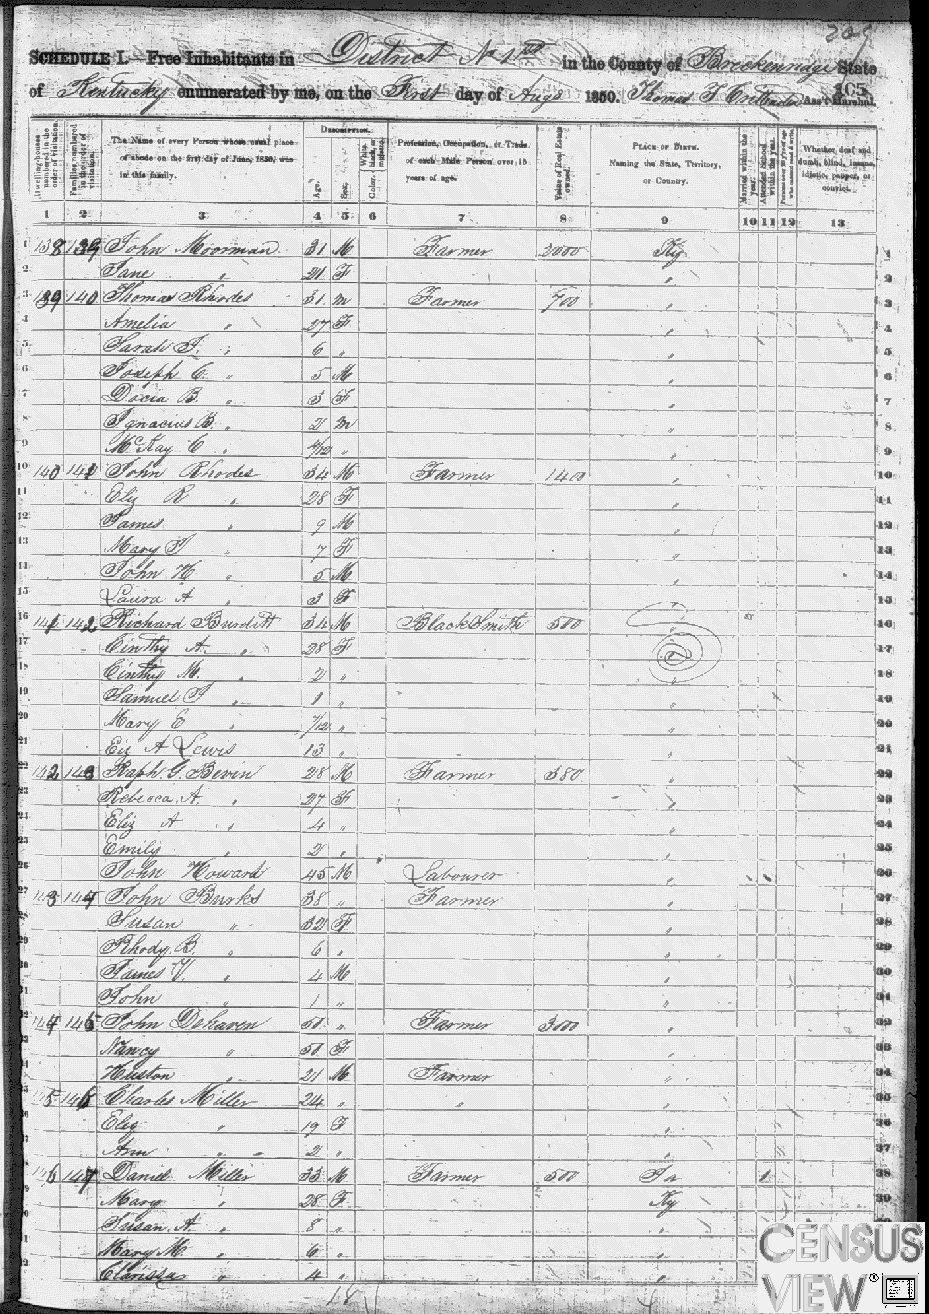 209
SCHEDULE I.—Free Inhabitants in District No 1st in the County of Breckenridge State
of Kentucky enumerated by me, on the First day of Augt 1850. Thomas J. Ass't Marshal.
105
Dwelling-houses numbered in the order of visitation.
Families numbered in the order of visitation.
The Name of every Person whose usual place of abode on the first day of June, 1850, was in this family.
DESCRIPTION.
Age.
Sex.
Color.
Profession, Occupation, or Trade of each Male Person over 15 years of age.
Value of Real Estate owned.
PLACE OF BIRTH. Naming the State, Territory, or Country.
Married within the year.
Attended School within the year.
Whether deaf and dumb, blind, insane, idiotic, pauper, or convict.
1 2 3 4 5 6 7 8 9 10 11 12 13
1 138 139 John Moorman 31 M Farmer 2000 Ky 1
2 Jane " 21 F " 2
3 139 140 Thomas Rhodes 31 m Farmer 700 " 3
4 Amelia " 27 F " 4
5 Sarah J. " 6 " " 5
6 Joseph C. " 5 M " 6
7 Docia B. " 3 F " 7
8 Ignacius B. " 2 m " 8
9 McKay C " /12 " " 9
10 140 141 John Rhodes 34 M Farmer 1400 " 10
11 Eliz R " 28 F " 11
12 James " 9 M " 12
13 Mary J " 7 F " 13
14 John H " 5 M " 14
15 Laura A " 3 F " 15
16 141 142 Richard Burditt 34 M BlackSmith 500 " 16
17 Cinthy A. " 28 F " 17
18 Cinthy M. " 2 " " 18
19 Samuel J " 1 " " 19
20 Mary E " 7/12 " " 20
21 Eliz A Lewis 13 " " 21
22 142 143 Raph G. Bevin 28 M Farmer 380 " 22
23 Rebecca A. " 27 F " 23
24 Eliz A " 4 " " 24
25 Emily " 2 " " 25
26 John Howard 45 M Labourer " 26
27 143 144 John Burks 38 " Farmer " 27
28 Susan " 32 F " 28
29 Rhody B. " 6 " " 29
30 James V " 4 M " 30
31 John " 1 " " 31
32 144 145 John Dehaven 50 " Farmer 3000 " 32
33 Nancy " 50 F " 33
34 Huston " 21 M Farmer " 34
35 145 146 Charles Miller 24 " " " 35
36 Eliz " 19 F " 36
37 Ann " " 2 " " 37
38 146 147 Daniel Miller 33 M Farmer 500 Ia 1 38
39 Mary " 28 F Ky 39
Susan A. " 8 " "
Mary M " 6 " "
Clarissa " 4 " "
18
CENSUS
VIEW®